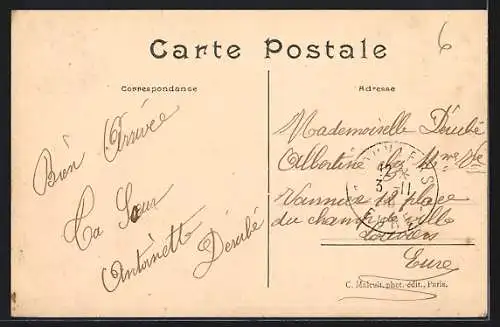 Carte Postale
6
Correspondance
Adresse
Bien Arrivée
Ta Sœur
Antoinette Désubé
Mademoiselle Désubé
Albertine chez Mme Vve
Vannier 12 place
du champ de ville
Louviers
Eure
3 - 11
C. Malcuit, phot. édit., Paris.